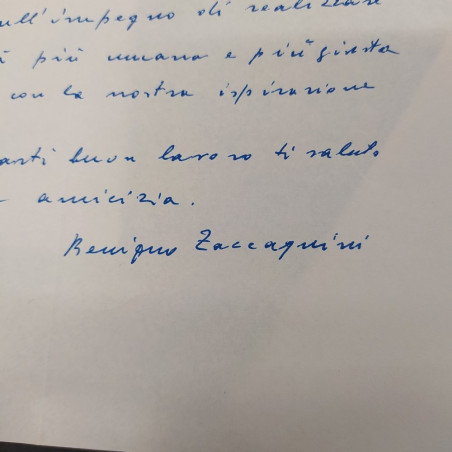 ull'impegno di realizzare
à più umana e più giusta
con la nostra ispirazione
anti buon lavoro ti saluto
amicizia.
Benigno Zaccagnini